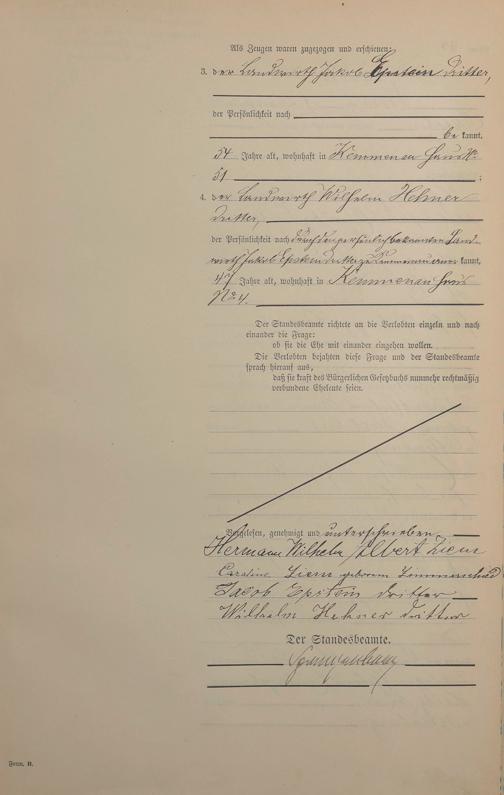 Als Zeugen waren zugezogen und erschienen:
3. der Landwirth Jakob Epstein dritter,
der Persönlichkeit nach
be kannt,
54 Jahre alt, wohnhaft in Kemmenau Haus No
51 ;
4. der Landwirth Wilhelm Hehner
dritter,
der Persönlichkeit nach durch den persönlich bekannten Land-
wirth Jakob Epstein dritter zu Kemmenau aner kannt,
47 Jahre alt, wohnhaft in Kemmenau Haus
No 4.
Der Standesbeamte richtete an die Verlobten einzeln und nach
einander die Frage:
ob sie die Ehe mit einander eingehen wollen.
Die Verlobten bejahten diese Frage und der Standesbeamte
sprach hierauf aus,
daß sie kraft des Bürgerlichen Gesetzbuchs nunmehr rechtmäßig
verbundene Eheleute seien.
Vorgelesen, genehmigt und unterschrieben
Hermann Wilhelm Albert Ziem
Caroline Ziem geborene
Jacob Epstein dritter
Wilhelm Hehner dritter
Der Standesbeamte.
Form. B.